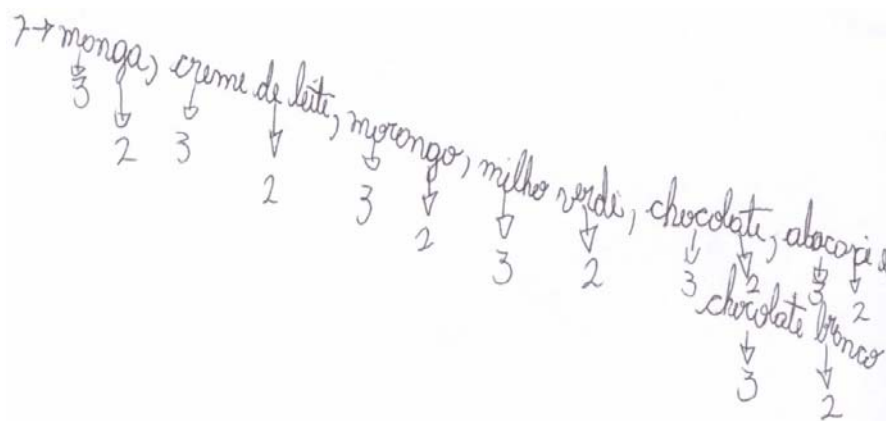 7→ manga, creme de leite, morango, milho verde, chocolate, abacaxi e
3 2 3 2 3 2 3 2 3 2 3 2
chocolate branco
3 2